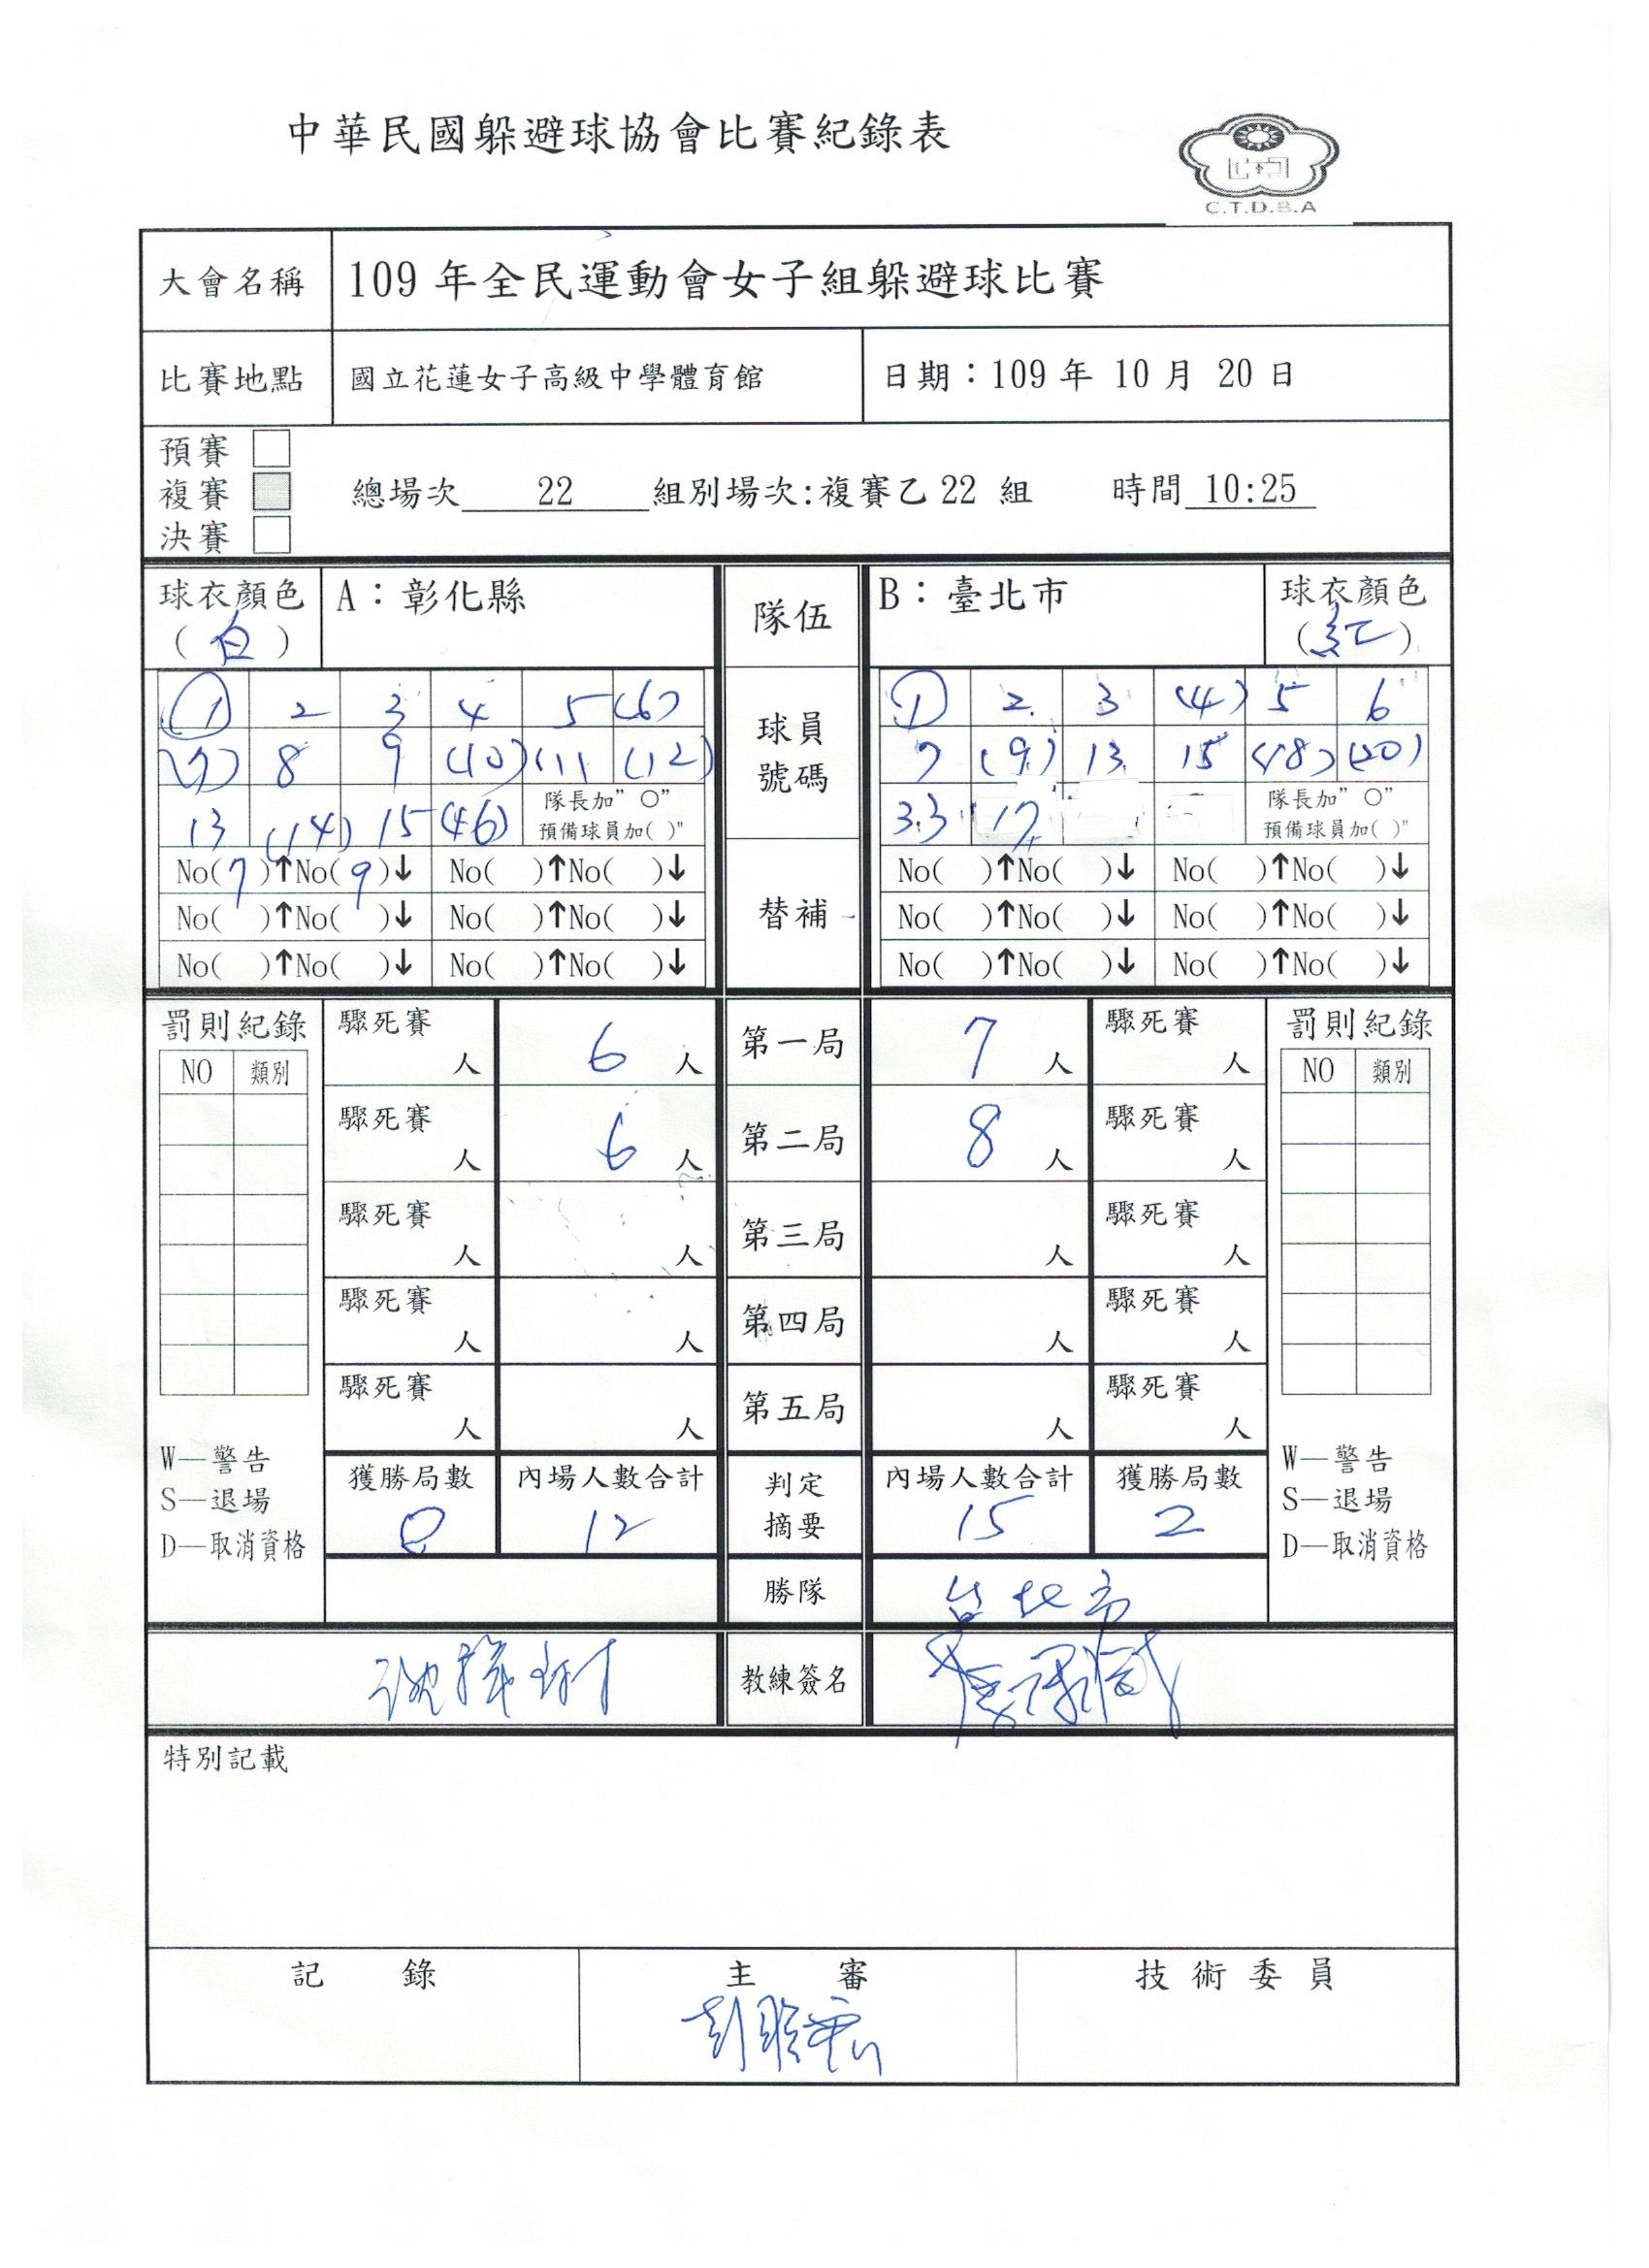 中華民國躲避球協會比賽紀錄表
C.T.D.B.A
大會名稱 109 年全民運動會女子組躲避球比賽
比賽地點 國立花蓮女子高級中學體育館 日期：109 年 10 月 20 日
預賽
複賽 總場次 22 組別場次:複賽乙 22 組 時間 10:25
決賽
球衣顏色 A：彰化縣 隊伍 B：臺北市 球衣顏色
(白) (紅)
1 2 3 4 5 (6) 球員 1 2 3 (4) 5 6
(7) 8 9 (10) (11 (12) 號碼 7 (9) 13 15 (18) (20)
13 (14) 15 (46) 隊長加" O" 33 17 隊長加" O"
預備球員加( )" 預備球員加( )"
No(7)↑No(9)↓ No( )↑No( )↓ 替補 No( )↑No( )↓ No( )↑No( )↓
No( )↑No( )↓ No( )↑No( )↓ No( )↑No( )↓ No( )↑No( )↓
No( )↑No( )↓ No( )↑No( )↓ No( )↑No( )↓ No( )↑No( )↓
罰則紀錄 驟死賽 人 6 人 第一局 7 人 驟死賽 人 罰則紀錄
NO 類別 NO 類別
驟死賽 人 6 人 第二局 8 人 驟死賽 人
驟死賽 人 人 第三局 人 驟死賽 人
驟死賽 人 人 第四局 人 驟死賽 人
驟死賽 人 人 第五局 人 驟死賽 人
W—警告 W—警告
S—退場 S—退場
D—取消資格 D—取消資格
獲勝局數 內場人數合計 判定摘要 內場人數合計 獲勝局數
0 12 15 2
勝隊 台北市
教練簽名
特別記載
記 錄 主 審 技術委員